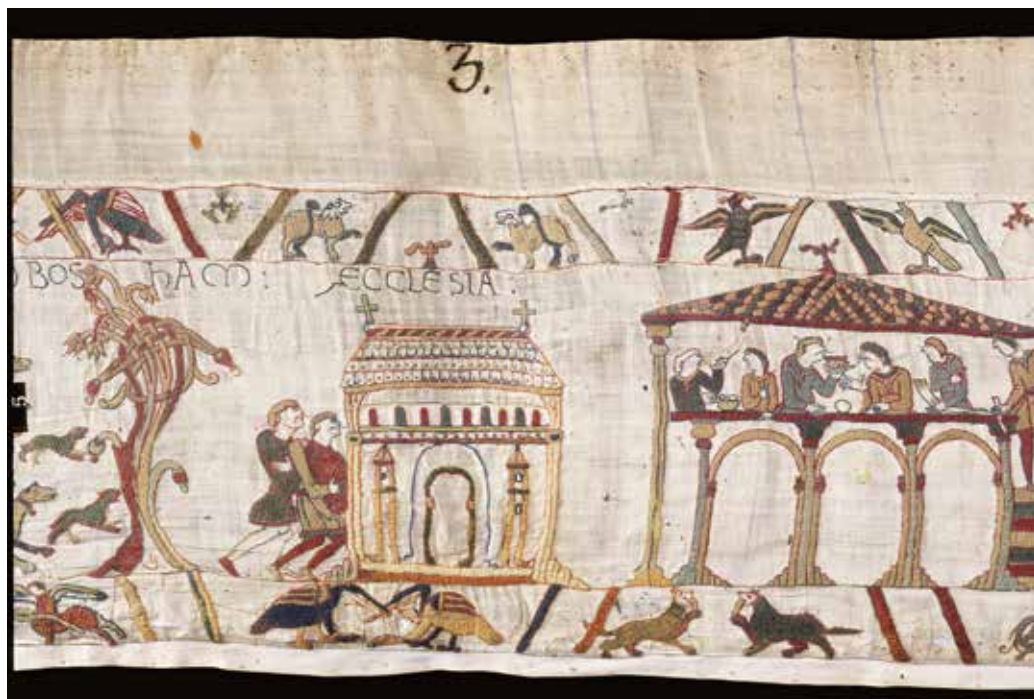 3.
BOSHAM: ECCLESIA:
5